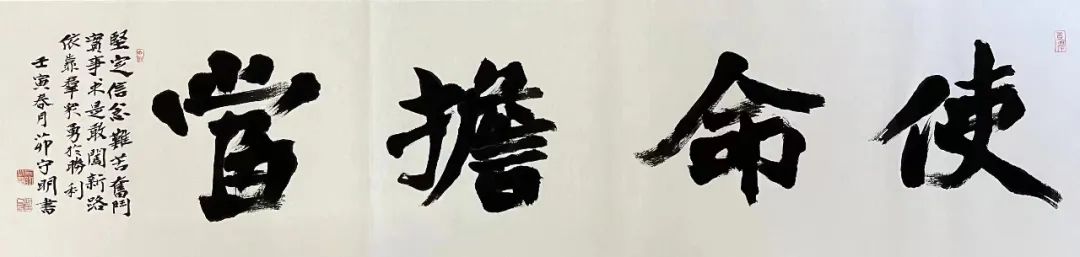 使命擔當
堅定信念艱苦奮鬥
實事求是敢闖新路
依靠羣眾勇於勝利
壬寅春月茆守明書